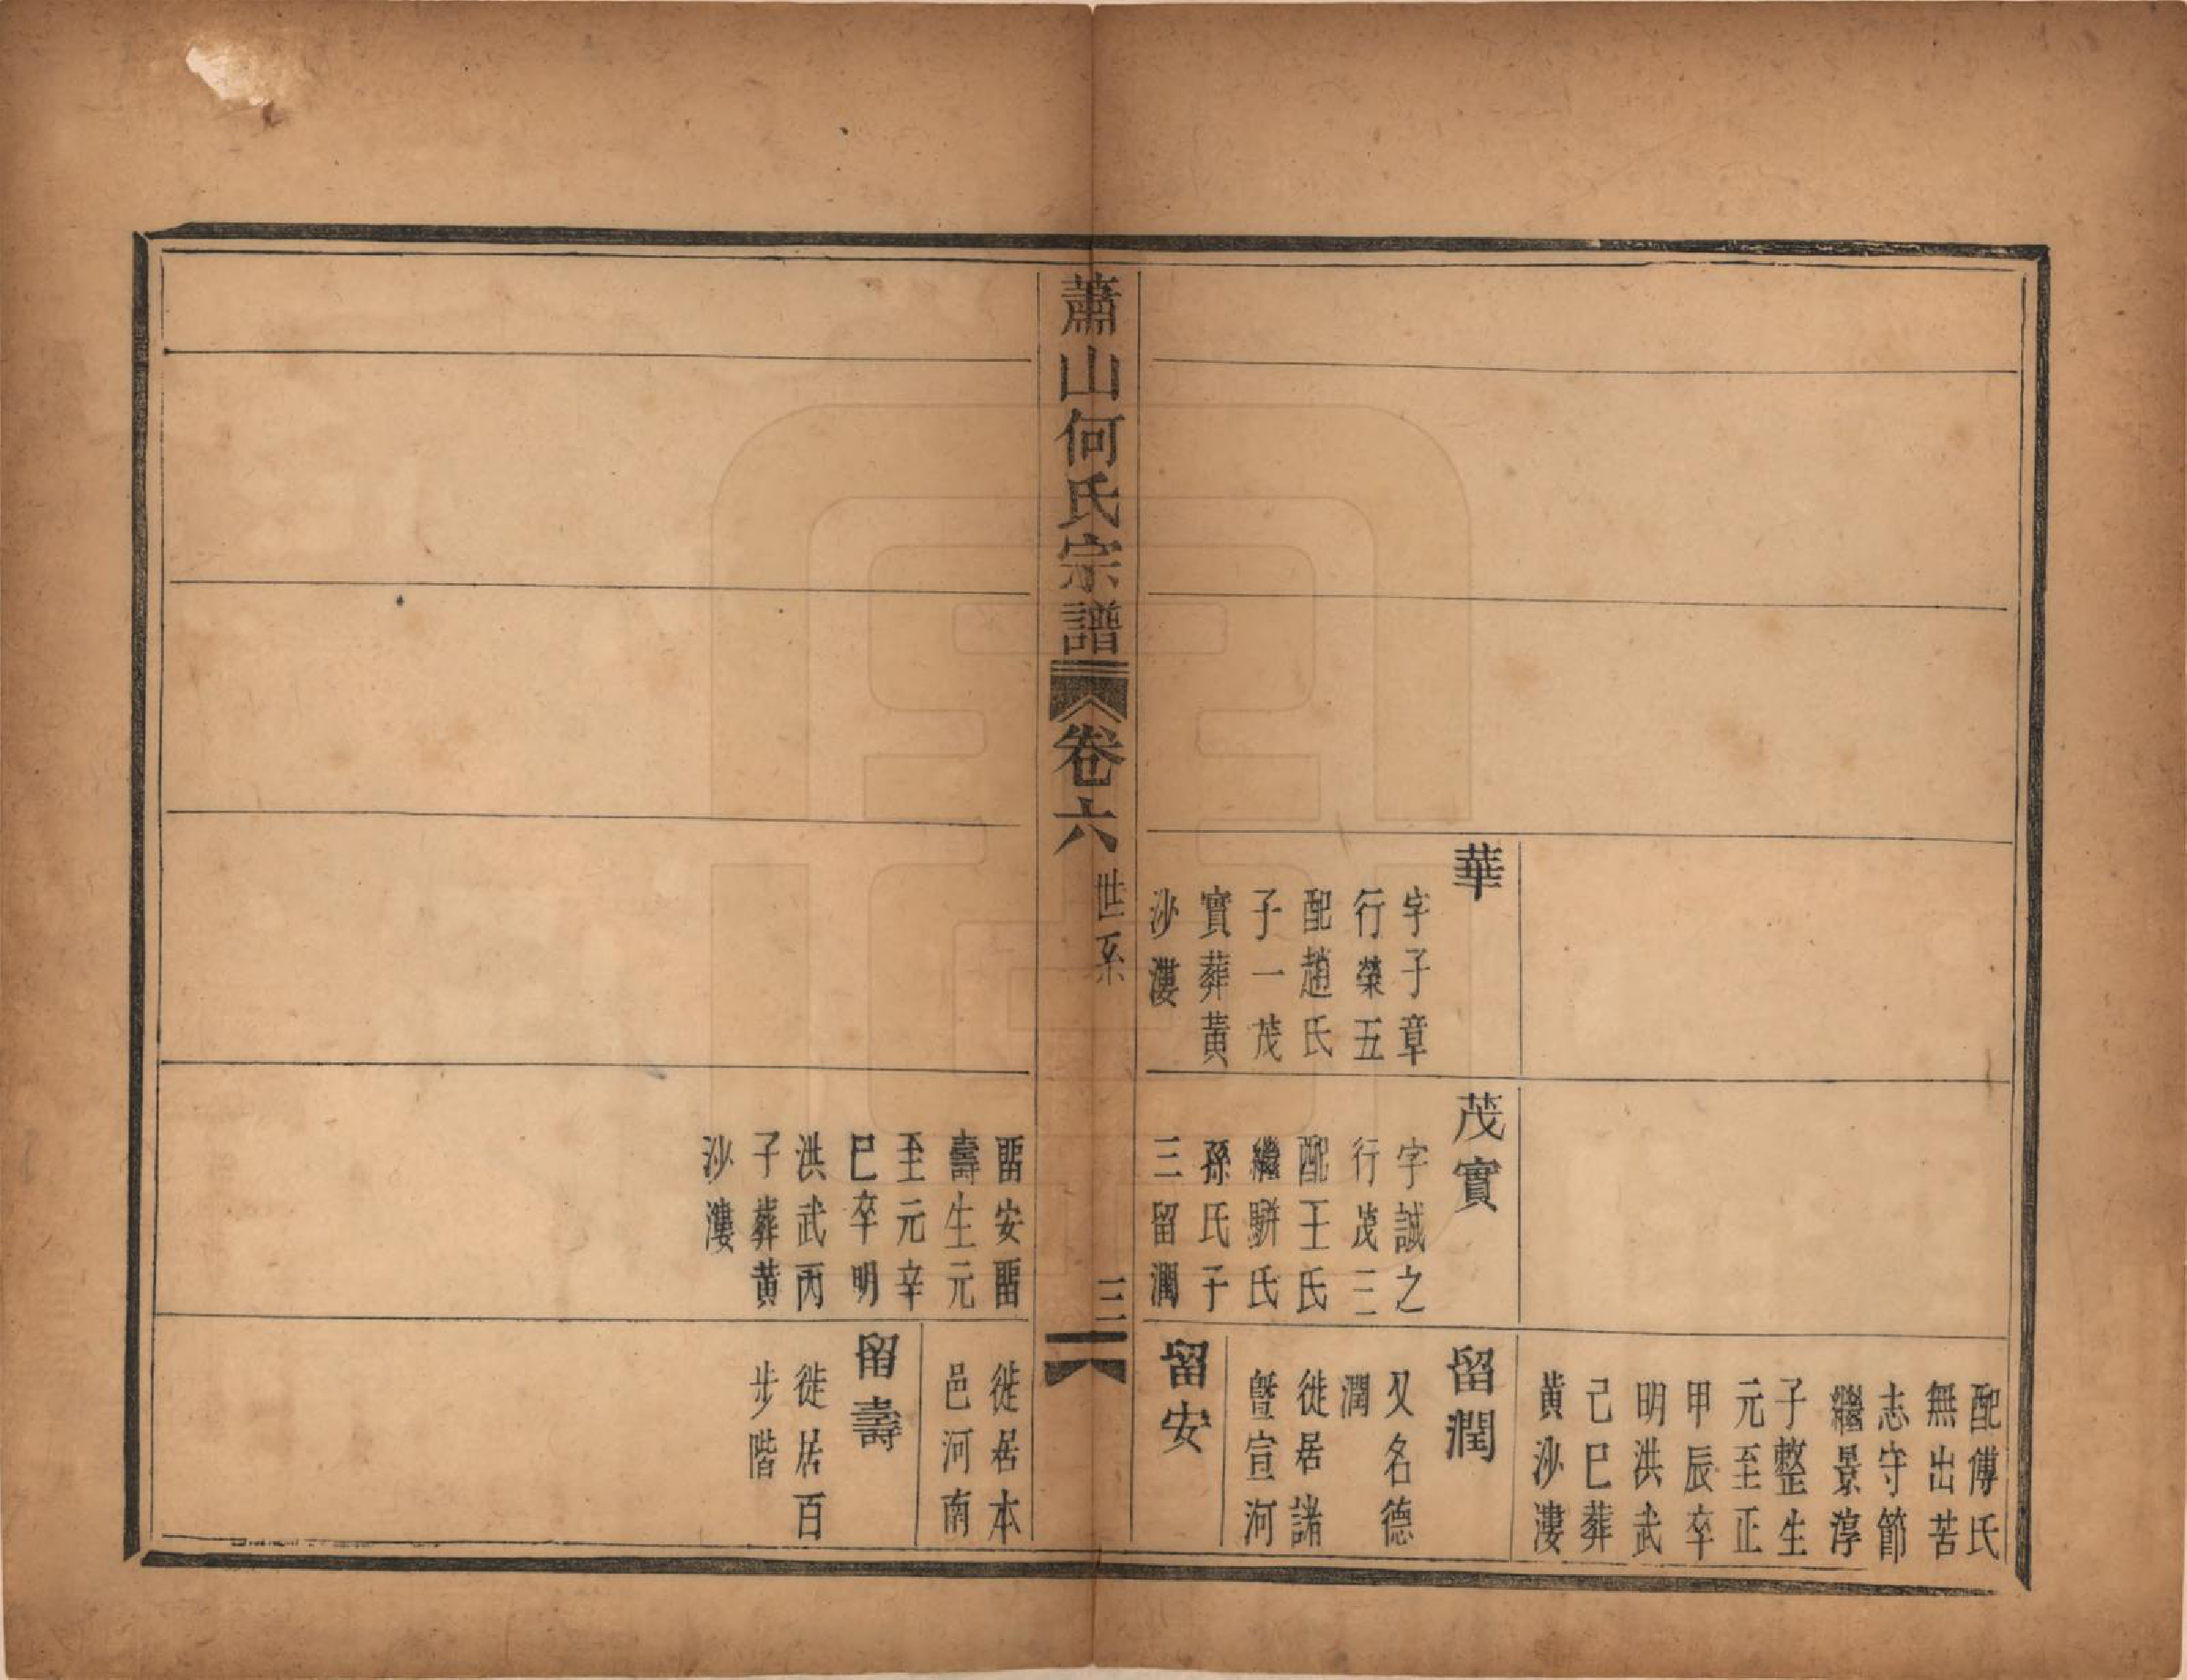 華
字子章
行榮五
配趙氏
子一茂
實葬黃
沙漊
茂實
字誠之
行茂三
配王氏
繼駢氏
孫氏子
三留潤
配傅氏
無出苦
志守節
繼景淳
子整生
元至正
甲辰卒
明洪武
己巳葬
黃沙漊
留潤
又名德
潤
徙居諸
暨宣河
留安
蕭山何氏宗譜
卷六
世系
三
留安留
壽生元
至元辛
巳卒明
洪武丙
子葬黃
沙漊
徙居本
邑河南
留壽
徙居百
步階